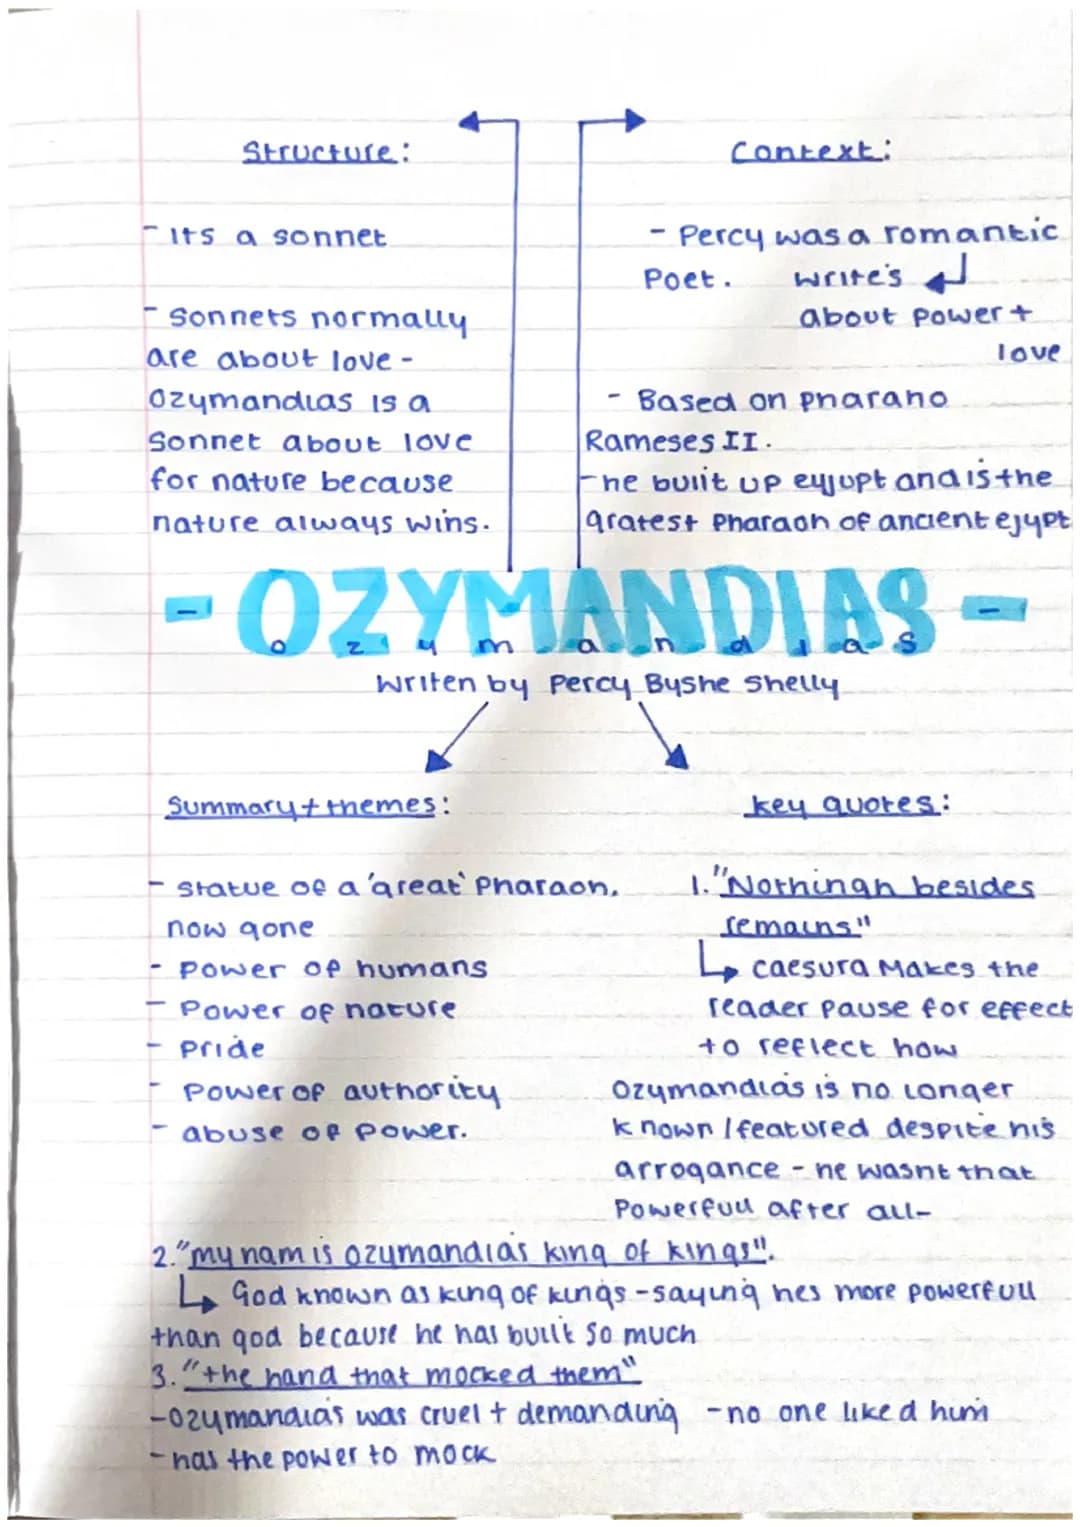 Structure:
- Its a sonnet
- Sonnets normally
are about love -
Ozymandias is a
Sonnet about love
for nature because
nature always wins.
Context:
- Percy was a romantic
Poet. write's
about power +
love
- Based on pharaho
Rameses II.
- he built up eyjupt and is the
gratest Pharaoh of ancient ejypt
- OZYMANDIAS -
ozymandias
Writen by Percy Byshe Shelly
Summary + themes:
- Statue of a 'great' Pharaoh,
now gone
- Power of humans
- Power of nature
- Pride
- Power of authority
- abuse of power.
key quotes:
1. "Nothingh besides
remains"
caesura Makes the
reader pause for effect
to reflect how
Ozymandias is no longer
known / featured despite his
arrogance - he wasnt that
Powerfull after all -
2. "my nam is ozymandias king of kings".
God known as king of kings - saying hes more powerfull
than god because he has built so much
3. "the hand that mocked them"
- Ozymandias was cruel + demanding - no one liked him
- has the power to mock